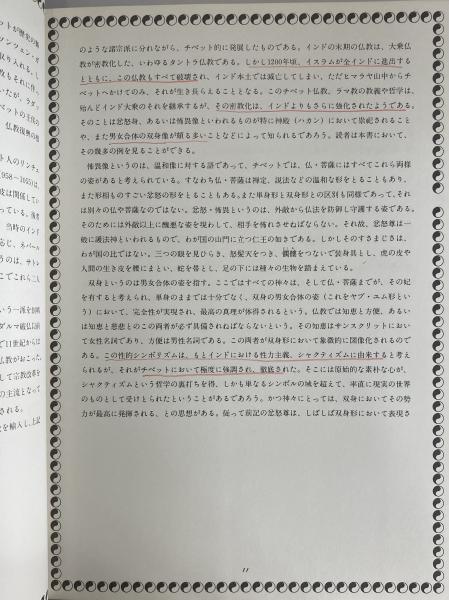 のような諸宗派に分れながら、チベット的に発展したものである。インドの末期の仏教は、大乗仏
教が密教化した、いわゆるタントラ仏教である。しかし1200年頃、イスラムが全インドに進出する
とともに、この仏教もすべて破壊され、インド本土では滅亡してしまい、ただヒマラヤ山中からチ
ベットへかけてのみ、それが生き長らえることとなる。このチベット仏教、ラマ教の教義や哲学は
殆んどインド大乗のそれを継承するが、その密教化は、インドよりもさらに強化されたようである。
そのことは忿怒身、あるいは怖畏像といわれるものが特に神殿（ハカン）において祟祀されること
や、また男女合体の双身像が頗る多いことなどによって知られるであろう。読者は本書において、
その幾多の例を見ることができる。
怖畏像というのは、温和像に対する語であって、チベットでは、仏・菩薩にはすべてこれら両様
の姿があると考えられている。すなわち仏・菩薩は禅定、説法などの温和な形をとることもあり、
また形相ものすごい忿怒の形をとることもある。また単身形と双身形との区別も同様であって、それ
は別々の仏や菩薩なのではない。忿怒・怖畏というのは、外敵から仏法を防御し守護する姿である。
そのためには外敵以上に醜悪な姿を現わして、相手を怖れさせねばならない。それ故、忿怒尊は一
般に護法神といわれるもので、わが国の山門に立つ仁王の如きである。しかしそのすさまじさは、
わが国の比ではない。三つの眼を見ひらき、怒髪天をつき、髑髏をつないで装身具とし、虎の皮や
人間の生き皮を腰にまとい、蛇を帯とし、足の下には種々の生物を踏まえている。
双身というのは男女合体の姿を指す。ここではすべての神々は、そして仏・菩薩までが、その妃
を有すると考えられ、単身のままでは十分でなく、双身の男女合体の姿（これをヤブ・ユム形とい
う）において、完全性が実現され、最高の真理が体得されるという。仏教では知恵と方便、あるい
は知恵と慈悲とのこの両者が必ず具備されねばならないという。その知恵はサンスクリットにおい
て女性名詞であり、方便は男性名詞である。この両者が双身形において象徴的に図像化されるので
ある。この性的シンボリズムは、もとインドにおける性力主義、シャクティズムに由来すると考え
られるが、それがチベットにおいて極度に強調され、徹底された。そこには原始的な素朴な心が、
シャクティズムという哲学の裏打ちを得、しかも単なるシンボルの域を超えて、率直に現実の世界
のものとして受けとられたということがあるであろう。かつ神々にとっては、双身においてその勢
力が最高に発揮される、との思想がある。従って前記の忿怒尊は、しばしば双身形において表現さ
11